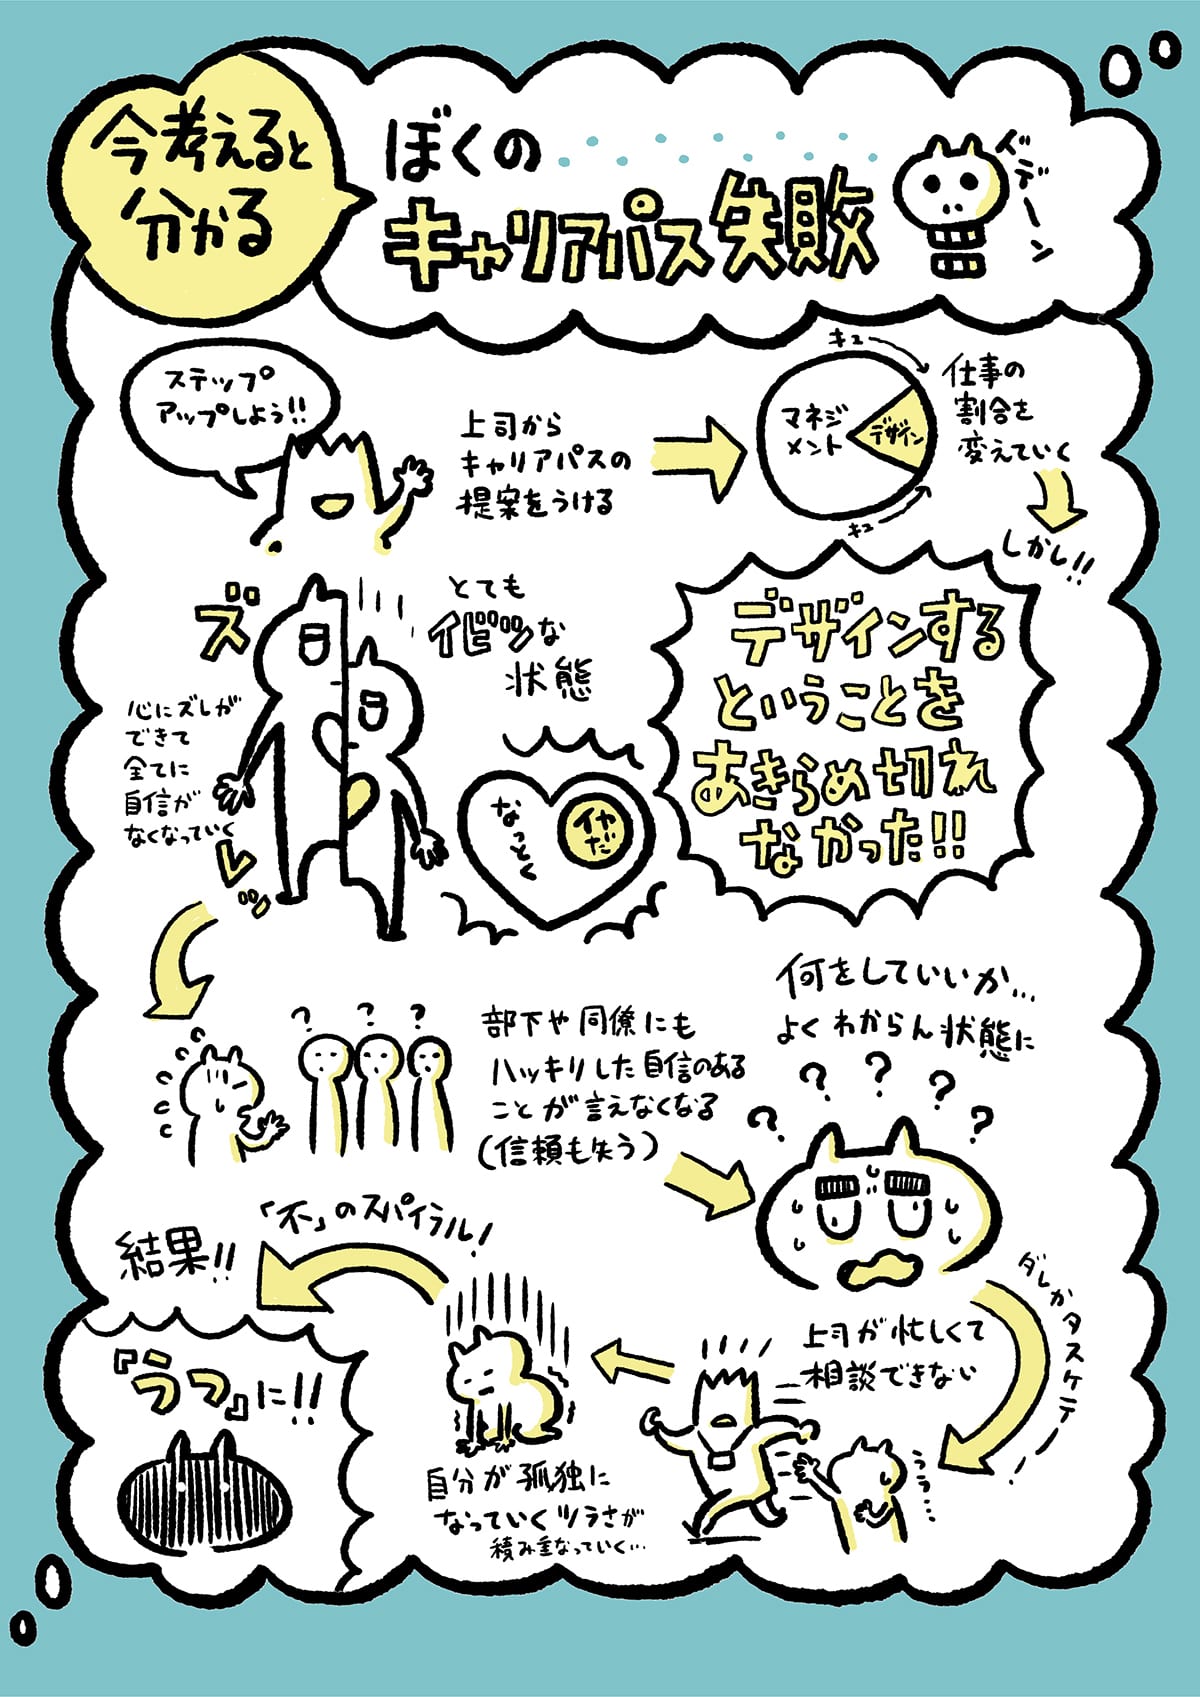 今考えると
分かる
ぼくの
キャリアパス失敗
ドデーン
ステップ
アップしよう!!
上司から
キャリアパスの
提案をうける
キュー
マネジ
メント
デザイン
キュー
仕事の
割合を
変えていく
しかし!!
デザインする
ということを
あきらめ切れ
なかった!!
とても
イビツな
状態
なっとく
イヤだ
ズレッ
心にズレが
できて
全てに
自信が
なくなっていく
? ? ?
部下や同僚にも
ハッキリした自信のある
ことが言えなくなる
(信頼も失う)
何をしていいか…
よくわからん状態に
? ? ? ? ?
ダレかタスケテー!
上司が忙しくて
相談できない
ううう…
自分が孤独に
なっていくツラさが
積み重なっていく…
「不」のスパイラル!
結果!!
『うつ』に!!